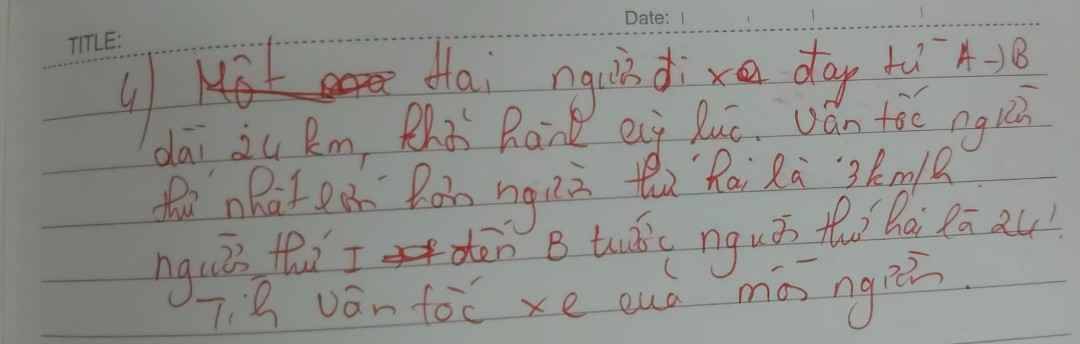 Date:
TITLE:
4) Một xe Hai người đi xe đạp từ A→B
dài 24 km, khởi hành cùng lúc. Vận tốc người
thứ nhất lớn hơn người thứ hai là 3km/h.
người thứ I đến B trước người thứ hai là 24'.
Tính vận tốc xe của mỗi người.